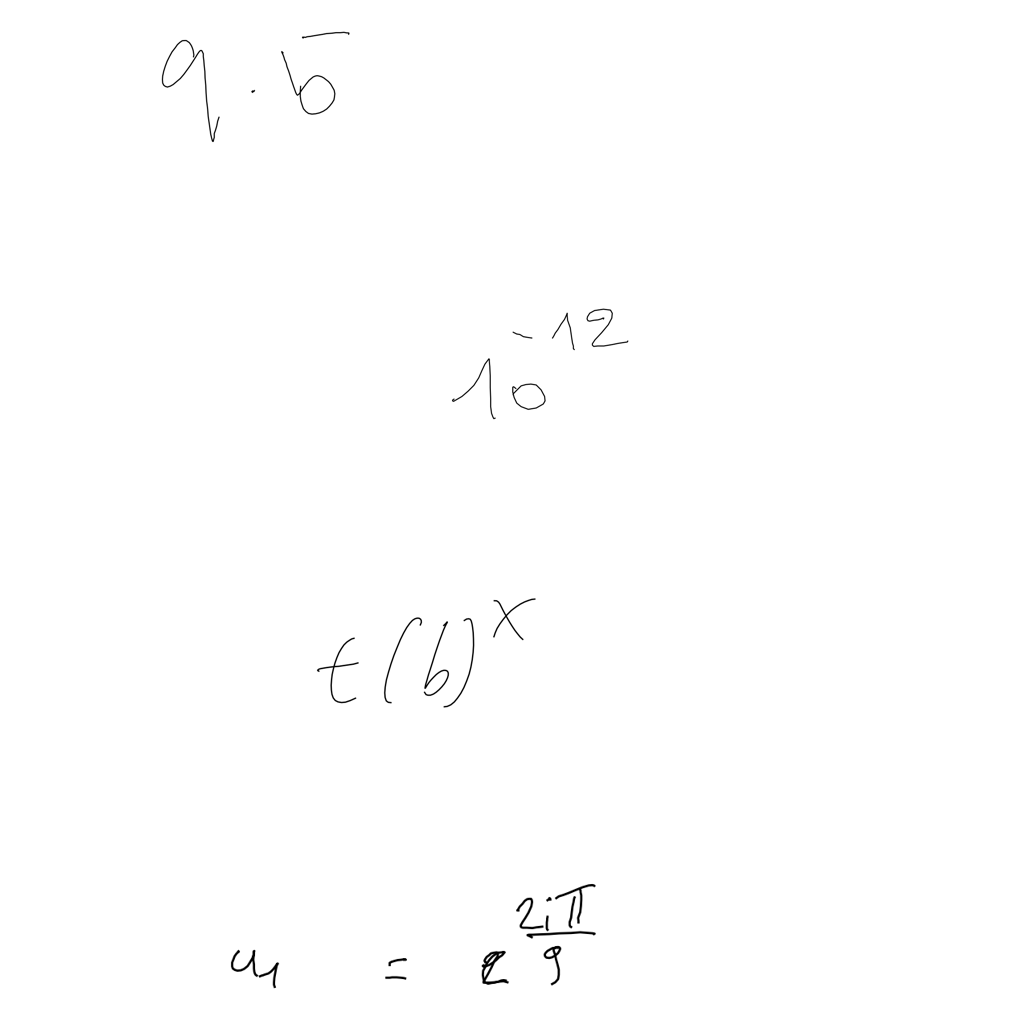 q · b̅
10⁻¹²
t(b)ˣ
u₁ = e^(2iπ/9)